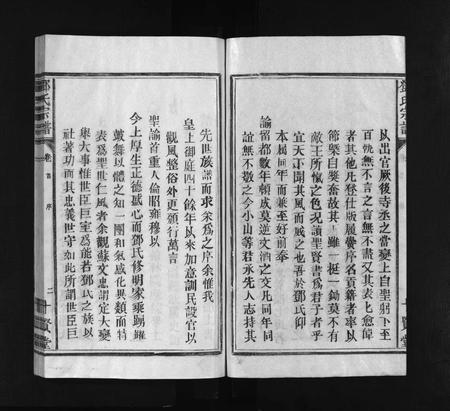 以出官厥後寺丞之當變上自聖躬下至
百執無不言之言無不盡又其表上愈倬
者其他凡登仕版履黌序名貢籍者率以
節槩自奬奮故其一雖一挺一鋤莫不有
敵王所愾之色况讀聖賢書為君子者乎
宜天下聞其風而威之也吾於鄧氏仰
本屆同年而兼至好前奉
諭留都數年頗成莫逆文酒之交凡同年同
誼無不敬之今小山等君承先人志持其
鄧氏宗譜
先世族譜而求余為之序余惟我
皇上御庭四十餘年以來加意訓民設官以
觀風整俗外更頒行萬言
聖諭首重人倫昭雍穆以
今上厚生正德感心而鄧氏修明家乘踴躍
鼓舞以體之知一團和氣感化異類而特
表為聖世仁風者余觀蘇文忠謂定大變
舉大事惟世臣巨室為能若鄧氏之族以
社著功而其忠義世守如此所謂世臣巨
鄧氏宗譜
卷首 序
二
十賢堂